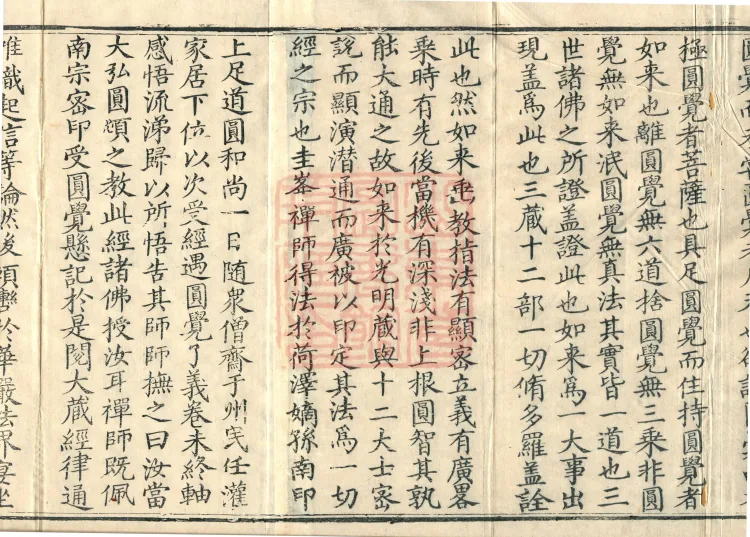 極圓覺者菩薩也具足圓覺而住持圓覺者
如来也離圓覺無六道捨圓覺無三乘非圓
覺無如来泯圓覺無真法其實皆一道也三
世諸佛之所證盖證此也如来爲一大事出
現盖爲此也三蔵十二部一切脩多羅盖詮
此也然如来垂教指法有顯密立義有廣畧
乘時有先後當機有深淺非上根圓智其孰
能大通之故如来於光明蔵與十二大士密
說而顯演潜通而廣被以印定其法爲一切
經之宗也圭峯禪師得法於荷澤嫡孫南印
上足道圓和尚一日随衆僧齋于州民任灌
家居下位以次受經遇圓覺了義卷未終軸
感悟流涕歸以所悟告其師師撫之曰汝當
大弘圓頓之教此經諸佛授汝耳禪師既佩
南宗密印受圓覺懸記於是閱大蔵經律通
唯識起信等論然後頓轡於華嚴法界宴坐